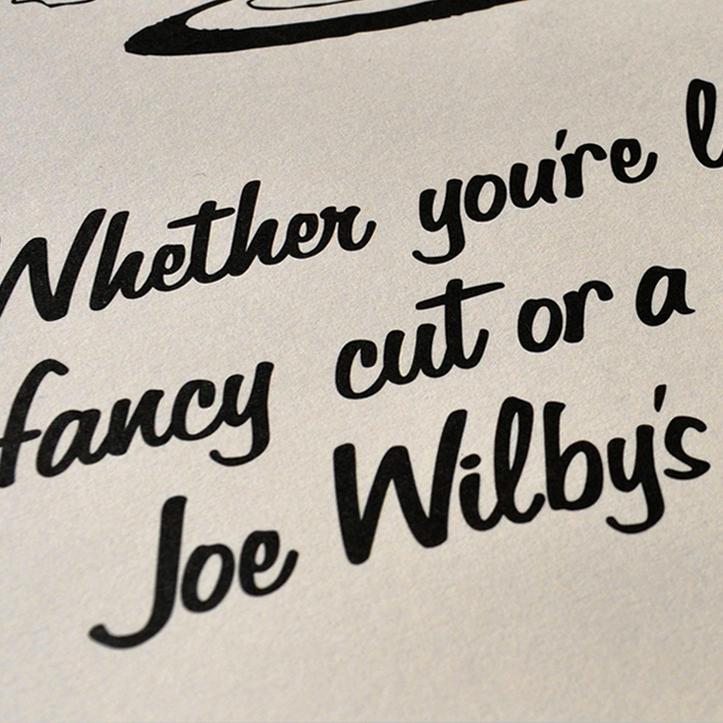 Whether you're
fancy cut or a
Joe Wilby's